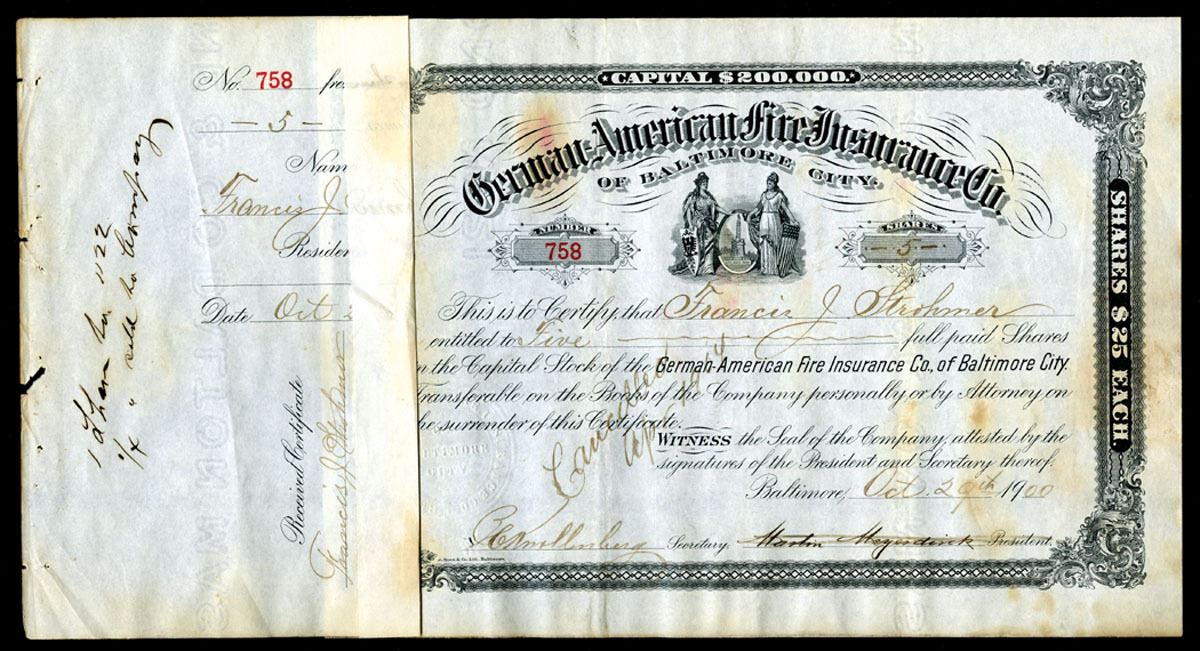 No. 758 fro.
- 5 -
Nam
Francis J.
Residen
Date Oct 2
Received Certificate
Francis J. Strohmer
1 Share No. 1122
sold to Company
CAPITAL $200,000.
German-American Fire Insurance Co.
OF BALTIMORE CITY.
NUMBER
758
SHARES
- 5 -
SHARES $25 EACH.
This is to Certify that Francis J. Strohmer
entitled to Five full paid Shares
n the Capital Stock of the German-American Fire Insurance Co., of Baltimore City.
Transferable on the Books of the Company personally or by Attorney on
he surrender of this Certificate.
Cancelled
WITNESS the Seal of the Company, attested by the
signatures of the President and Secretary thereof.
Baltimore, Oct. 29th 1900
Secretary. Martin Meyerdirck President.